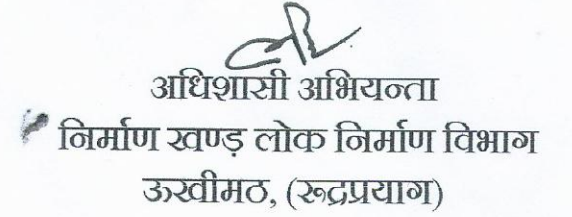 अधिशासी अभियन्ता
निर्माण खण्ड़ लोक निर्माण विभाग
ऊखीमठ, (रूद्रप्रयाग)